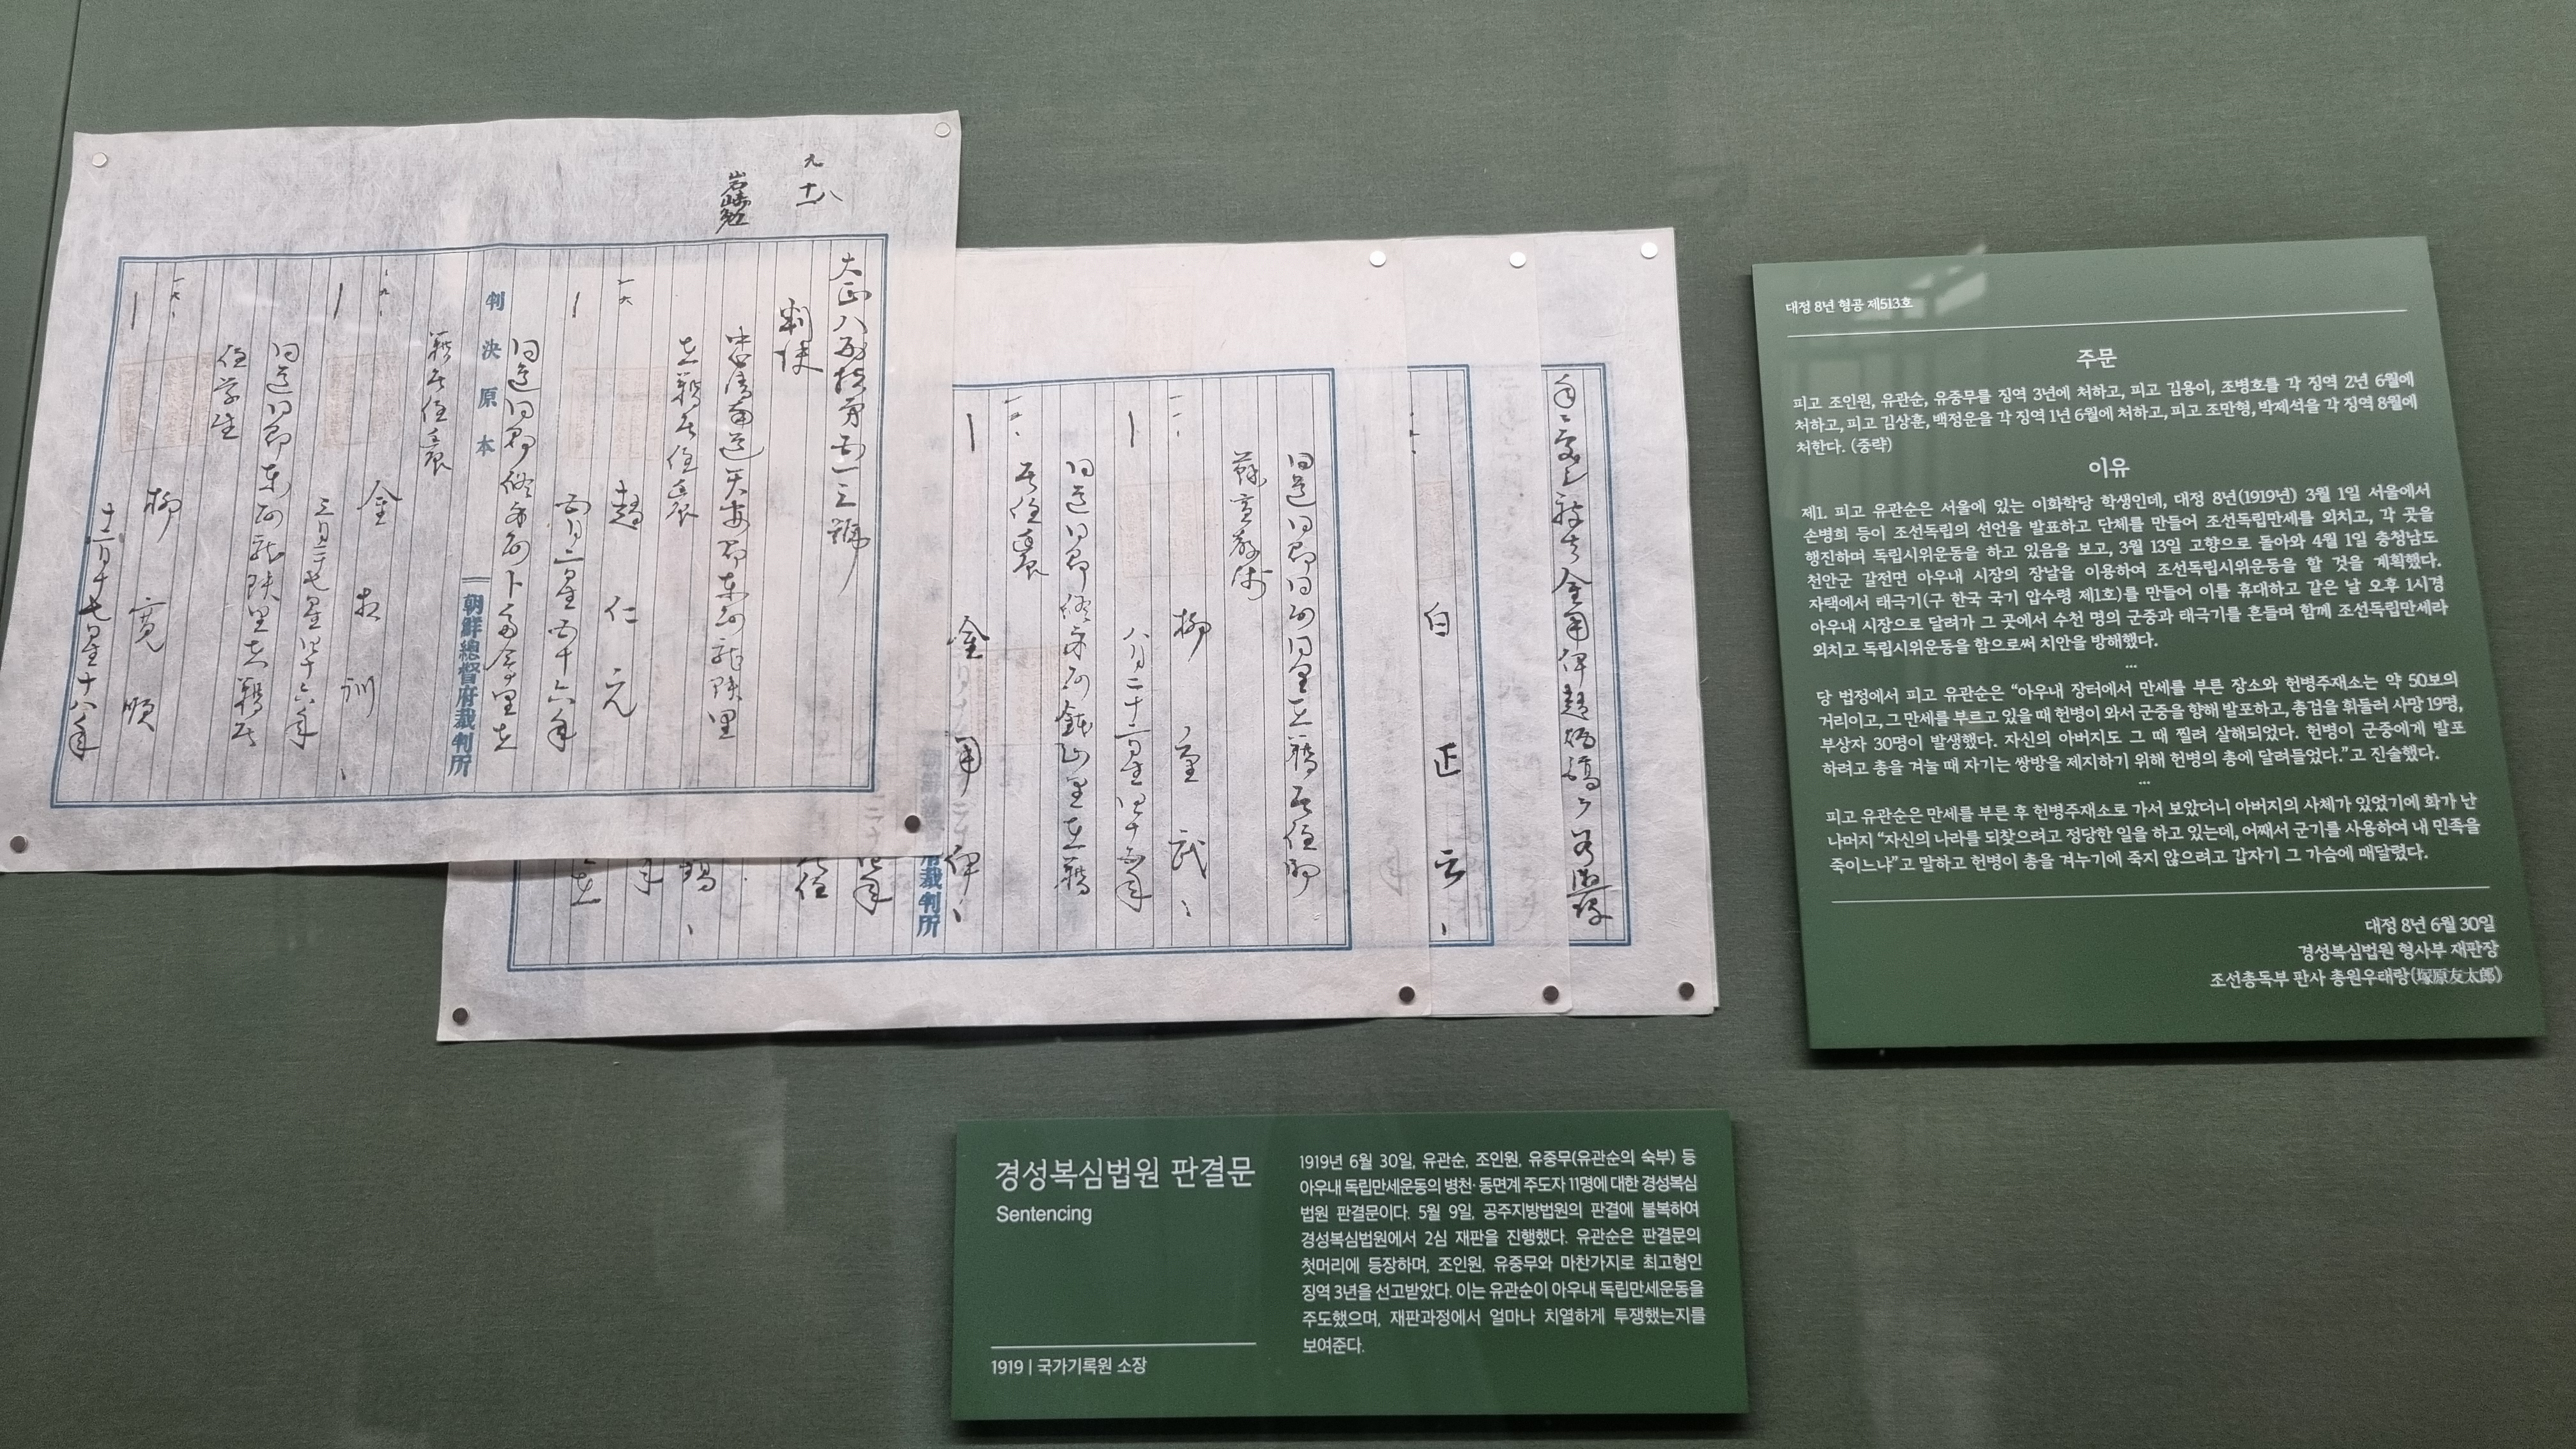 九
十八
大正八年控第五一三號
判決
忠淸南道天安郡東面龍頭里
趙仁元
五月二日生五十六年
判決原本
朝鮮總督府裁判所
金相訓
同道同郡東面龍頭里
住學生
柳寬順
十二月十七日生十八年
同道同郡同面同里
柳重武
金用伊
裁判所
白正云
대정 8년 형공 제513호
주문
피고 조인원, 유관순, 유중무를 징역 3년에 처하고, 피고 김용이, 조병호를 각 징역 2년 6월에
처하고, 피고 김상훈, 백정운을 각 징역 1년 6월에 처하고, 피고 조만형, 박제석을 각 징역 8월에
처한다. (중략)
이유
제1. 피고 유관순은 서울에 있는 이화학당 학생인데, 대정 8년(1919년) 3월 1일 서울에서
손병희 등이 조선독립의 선언을 발표하고 단체를 만들어 조선독립만세를 외치고, 각 곳을
행진하며 독립시위운동을 하고 있음을 보고, 3월 13일 고향으로 돌아와 4월 1일 충청남도
천안군 갈전면 아우내 시장의 장날을 이용하여 조선독립시위운동을 할 것을 계획했다.
자택에서 태극기(구 한국 국기 압수령 제1호)를 만들어 이를 휴대하고 같은 날 오후 1시경
아우내 시장으로 달려가 그 곳에서 수천 명의 군중과 태극기를 흔들며 함께 조선독립만세라
외치고 독립시위운동을 함으로써 치안을 방해했다.
...
당 법정에서 피고 유관순은 “아우내 장터에서 만세를 부른 장소와 헌병주재소는 약 50보의
거리이고, 그 만세를 부르고 있을 때 헌병이 와서 군중을 향해 발포하고, 총검을 휘둘러 사망 19명,
부상자 30명이 발생했다. 자신의 아버지도 그 때 찔려 살해되었다. 헌병이 군중에게 발포
하려고 총을 겨눌 때 자기는 쌍방을 제지하기 위해 헌병의 총에 달려들었다.”고 진술했다.
...
피고 유관순은 만세를 부른 후 헌병주재소로 가서 보았더니 아버지의 사체가 있었기에 화가 난
나머지 “자신의 나라를 되찾으려고 정당한 일을 하고 있는데, 어째서 군기를 사용하여 내 민족을
죽이느냐”고 말하고 헌병이 총을 겨누기에 죽지 않으려고 갑자기 그 가슴에 매달렸다.
대정 8년 6월 30일
경성복심법원 형사부 재판장
조선총독부 판사 총원우태랑(塚原友太郎)
경성복심법원 판결문
Sentencing
1919 | 국가기록원 소장
1919년 6월 30일, 유관순, 조인원, 유중무(유관순의 숙부) 등
아우내 독립만세운동의 병천·동면계 주도자 11명에 대한 경성복심
법원 판결문이다. 5월 9일, 공주지방법원의 판결에 불복하여
경성복심법원에서 2심 재판을 진행했다. 유관순은 판결문의
첫머리에 등장하며, 조인원, 유중무와 마찬가지로 최고형인
징역 3년을 선고받았다. 이는 유관순이 아우내 독립만세운동을
주도했으며, 재판과정에서 얼마나 치열하게 투쟁했는지를
보여준다.